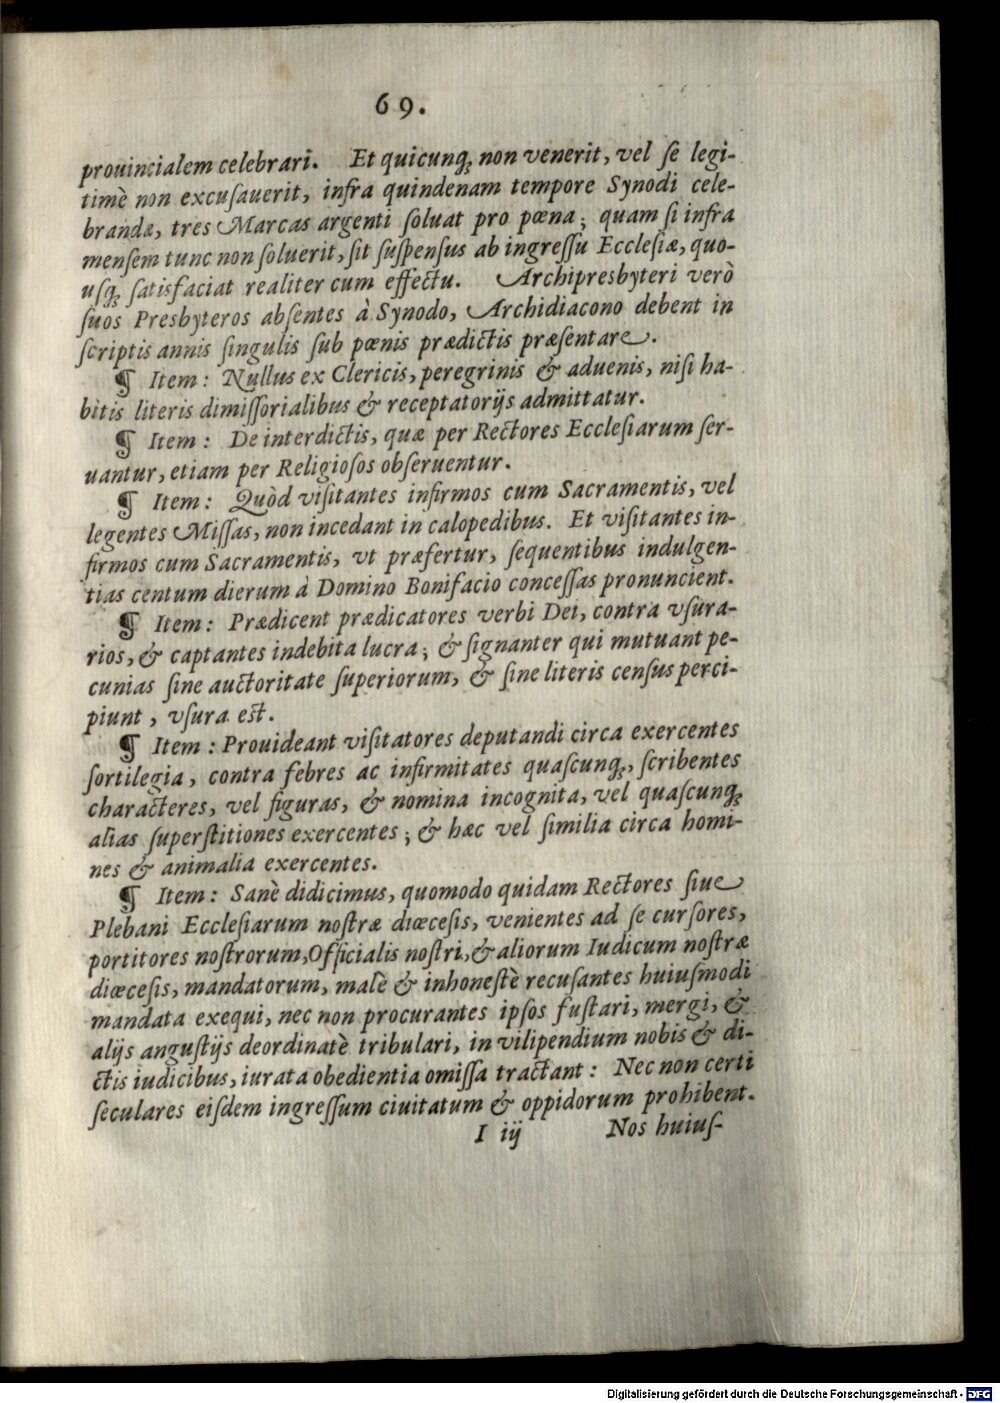 69.
prouincialem celebrari. Et quicunq; non venerit, vel ſe legi-
timè non excuſauerit, infra quindenam tempore Synodi cele-
brandæ, tres Marcas argenti ſoluat pro pœna; quam ſi infra
menſem tunc non ſoluerit, ſit ſuſpenſus ab ingreſſu Eccleſiæ, quo-
uſq; ſatisfaciat realiter cum effectu. Archipresbyteri verò
ſuos Presbyteros abſentes à Synodo, Archidiacono debent in
ſcriptis annis ſingulis ſub pœnis prædictis præſentare.
¶ Item: Nullus ex Clericis, peregrinis & aduenis, niſi ha-
bitis literis dimiſſorialibus & receptatorijs admittatur.
¶ Item: De interdictis, quæ per Rectores Eccleſiarum ſer-
uantur, etiam per Religioſos obſeruentur.
¶ Item: Quòd viſitantes infirmos cum Sacramentis, vel
legentes Miſſas, non incedant in calopedibus. Et viſitantes in-
firmos cum Sacramentis, vt præfertur, ſequentibus indulgen-
tias centum dierum à Domino Bonifacio conceſſas pronuncient.
¶ Item: Prædicent prædicatores verbi Dei, contra vſura-
rios, & captantes indebita lucra; & ſignanter qui mutuant pe-
cunias ſine auctoritate ſuperiorum, & ſine literis cenſus perci-
piunt, vſura eſt.
¶ Item: Prouideant viſitatores deputandi circa exercentes
ſortilegia, contra febres ac infirmitates quaſcunq;, ſcribentes
characteres, vel figuras, & nomina incognita, vel quaſcunq;
alias ſuperſtitiones exercentes; & hæc vel ſimilia circa homi-
nes & animalia exercentes.
¶ Item: Sanè didicimus, quomodo quidam Rectores ſiue
Plebani Eccleſiarum noſtræ diœceſis, venientes ad ſe curſores,
portitores noſtrorum, Officialis noſtri, & aliorum Iudicum noſtræ
diœceſis, mandatorum, malè & inhoneſtè recuſantes huiuſmodi
mandata exequi, nec non procurantes ipſos fuſtari, mergi, &
alijs anguſtijs deordinatè tribulari, in vilipendium nobis & di-
ctis iudicibus, iurata obedientia omiſſa tractant: Nec non certi
ſeculares eiſdem ingreſſum ciuitatum & oppidorum prohibent.
I iij Nos huiuſ-
Digitalisierung gefördert durch die Deutsche Forschungsgemeinschaft - DFG